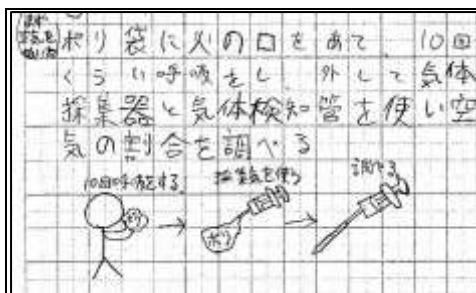 ポリ袋に人の口をあて、10回
くらい呼吸をし、外して気体
採集器と気体検知管を使い空
気の割合を調べる
10回呼吸する。
採集気を使う
調べる
ポリ
ポリ